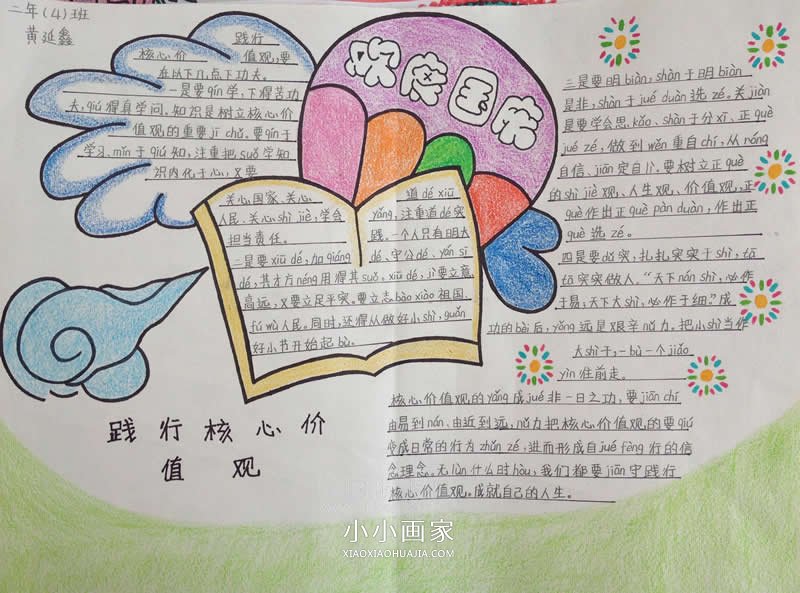 二年(4)班
黄延鑫
欢度国庆
践行
核心价 值观,要
在以下几点下功夫。
一是要qín学,下得苦功
夫,qiú得真学问。知识是树立核心价
值观的重要jī chǔ。要qín于
学习、mǐn于qiú知,注重把suǒ学知
识内化于心,又要
关心国家、关心
人民、关心shì jiè,学会
担当责任。
二是要xiū dé,加qiáng
道dé xiū
yǎng,注重道dé实
践。一个人只有明大
dé、守公dé、yán sī
dé,其才方néng用得其suǒ,xiū dé,jì要立意
高远,又要立足平实。要立志bào xiào祖国、
fú wù人民。同时,还得从做好小shì,guǎn
好小节开始起bù。
三是要明biàn,shàn于明biàn
是非,shàn于jué duàn选zé。关jiàn
是要学会思kǎo、shàn于分xī、正què
jué zé,做到wěn重自chí,从róng
自信、jiān定自lǐ。要树立正què
的shì jiè观、人生观、价值观,正
què作出正què pàn duàn,作出正
què选zé。
四是要dǔ实,扎扎实实干shì,tā
tā实实做人。“天下nán shì,必作
于易;天下大shì,必作于细。”成
功的bài后,yǒng远是艰辛nǔ力。把小shì当作
大shì干,一bù一个jiǎo
yìn往前走。
核心价值观的yǎng成jué非一日之功,要jiān chí
由易到nán、由近到远,nǔ力把核心价值观的要qiú
变成日常的行为zhǔn zé,进而形成自jué fèng行的信
念理念。无lùn什么时hòu,我们都要jiān守践行
核心价值观。成就自己的人生。
践行核心价
值观
小小画家
XIAOXIAOHUAJIA.COM